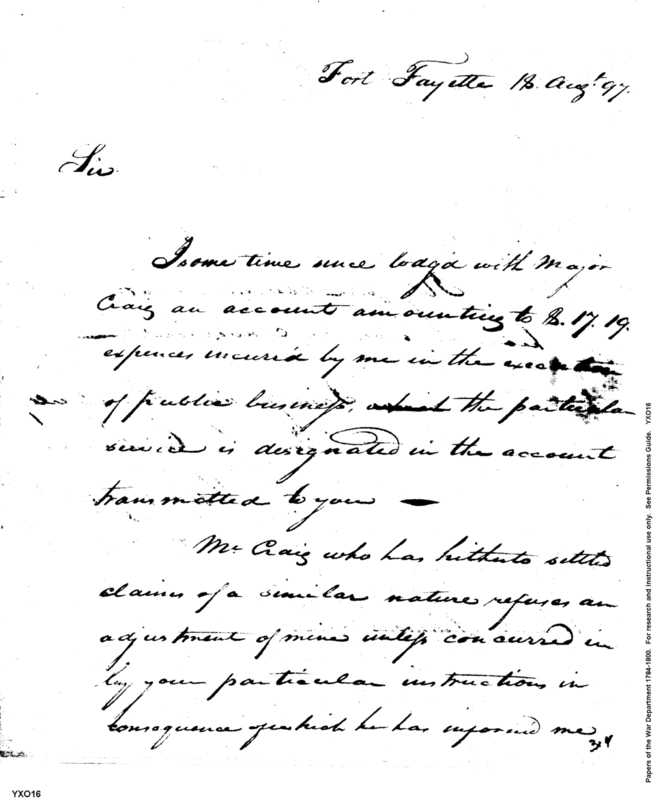 Fort Fayette 18. Augt. 97.
Sir
I some time since lodgd with Major
Craig an account amounting to 17. 19.
expences incured by me in the execution
of public business, the particular
service is designated in the account
transmitted to you —
Mr Craig who has hitherto settled
claims of a similar nature refuses an
adjustment of mine unless concurred in
by your particular instructions in
consequence of which he has informed me
YXO16
Papers of the War Department 1784-1800. For research and instructional use only. See Permissions Guide. YXO16